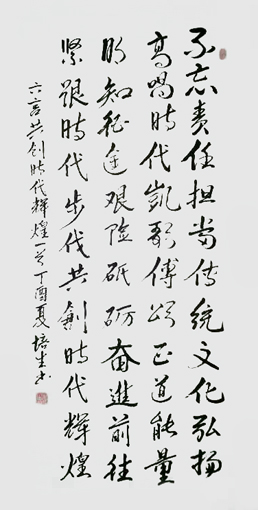 不忘责任担当传统文化弘扬
高唱时代凯歌传颂正道能量
明知征途艰险砥砺奋进前往
紧跟时代步伐共创时代辉煌
六言共创时代辉煌一首丁酉夏培生书